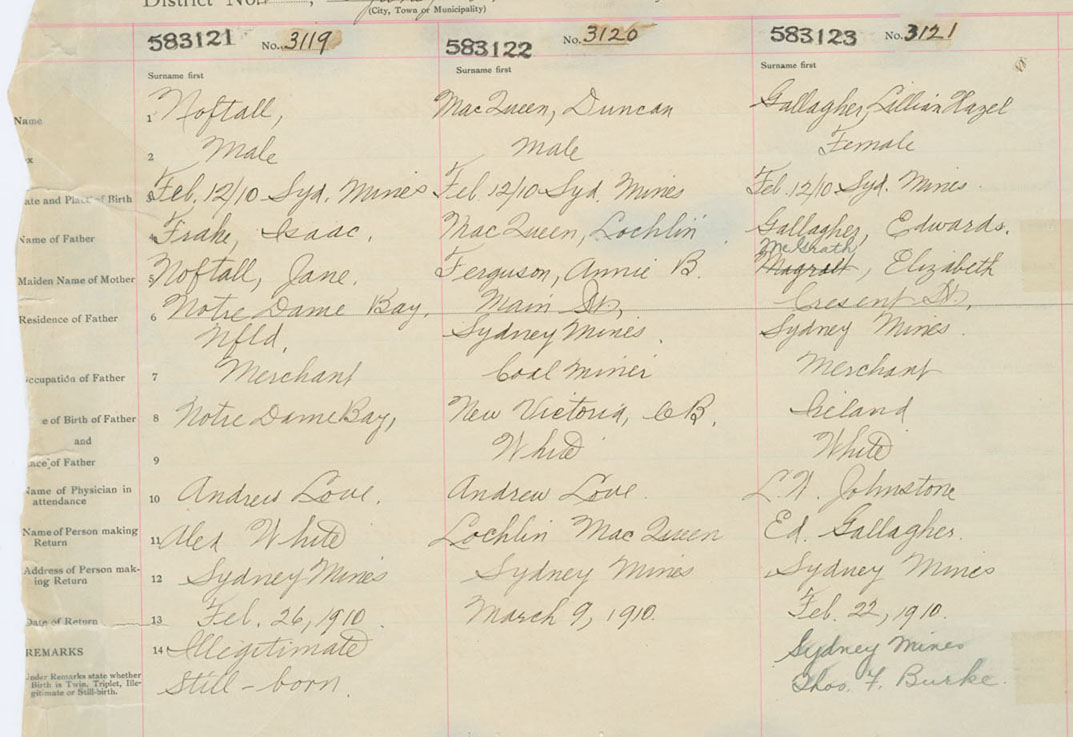 District No.
(City, Town or Municipality)
583121 No. 3119
583122 No. 3120
583123 No. 3121
Surname first
Surname first
Surname first
Name
1 Noftall,
MacQueen, Duncan
Gallagher, Lillian Hazel
2 Male
Male
Female
ate and Place of Birth
3 Feb. 12/10 Syd. Mines
Feb. 12/10 Syd. Mines
Feb. 12/10 Syd. Mines.
Name of Father
4 Frake, Isaac.
MacQueen, Lochlin
Gallagher, Edwards.
McGrath
Maiden Name of Mother
5 Noftall, Jane.
Ferguson, Annie B.
Magratt, Elizabeth
Residence of Father
6 Notre Dame Bay,
Nfld,
Main St,
Sydney Mines.
Cresent St,
Sydney Mines.
ccupation of Father
7 Merchant
Coal Miner
Merchant
e of Birth of Father
8 Notre Dame Bay,
New Victoria, C B.
Ireland
and
ace of Father
9
White
White
Name of Physician in
attendance
10 Andrew Love.
Andrew Love.
L. W. Johnstone
Name of Person making
Return
11 Alex White
Lochlin MacQueen
Ed. Gallagher.
Address of Person mak-
ing Return
12 Sydney Mines
Sydney Mines
Sydney Mines
Date of Return
13 Feb. 26, 1910.
March 9, 1910.
Feb. 22, 1910.
REMARKS
14 Illegitimate
Still-born.
Sydney Mines
Thos. F. Burke.
Under Remarks state whether
Birth is Twin, Triplet, Ille-
gitimate or Still-birth.